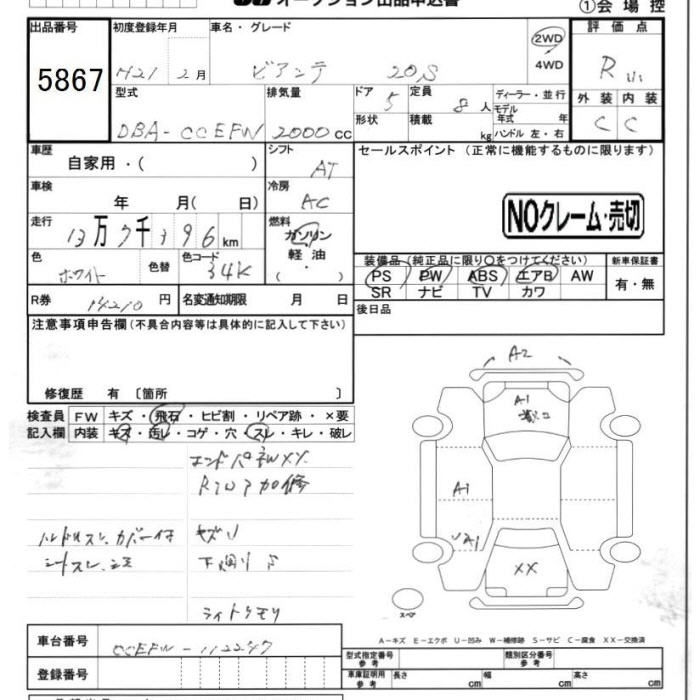 オークション出品申込書
①会場控
出品番号 初度登録年月 車名・グレード 評価点
5867 H21 2月 ビアンテ 20S 2WD 4WD R
型式 排気量 ドア 5 定員 8人 ディーラー・並行 外装 内装
モデル年式 年
DBA-CCEFW 2000cc 形状 積載 kg ハンドル 左・右 C C
車歴 シフト セールスポイント (正常に機能するものに限ります)
自家用・( ) AT
車検 冷房
年 月( 日) AC
NOクレーム・売切
走行 燃料
13万7千396km ガソリン
軽油
・
( )
色 色替 色コード
ホワイト 34K
装備品(純正品に限り○をつけてください) 新車保証書
PS PW ABS エアB AW 有・無
SR ナビ TV カワ
R券 14210円 名変通知期限 月 日
後日品
注意事項申告欄(不具合内容等は具体的に記入して下さい)
修復歴 有 〔箇所 〕
検査員 FW キズ・飛石・ヒビ割・リペア跡・×要
記入欄 内装 キズ・汚レ・コゲ・穴・スレ・キレ・破レ
エンドパネルXX
Rフロア加修
ハンドルスレ、カバー付
シートスレ、シミ
キズ
下廻り
ライトクモリ
A2
A1
A1
A1
XX
スペア
A-キズ E-エクボ U-凹み W-補修跡 S-サビ C-腐食 XX-交換済
車台番号 CCEFW-112247
型式指定番号 参考 類別区分番号 参考
登録番号
車庫証明用 参考 長さ cm 幅 cm 高さ cm